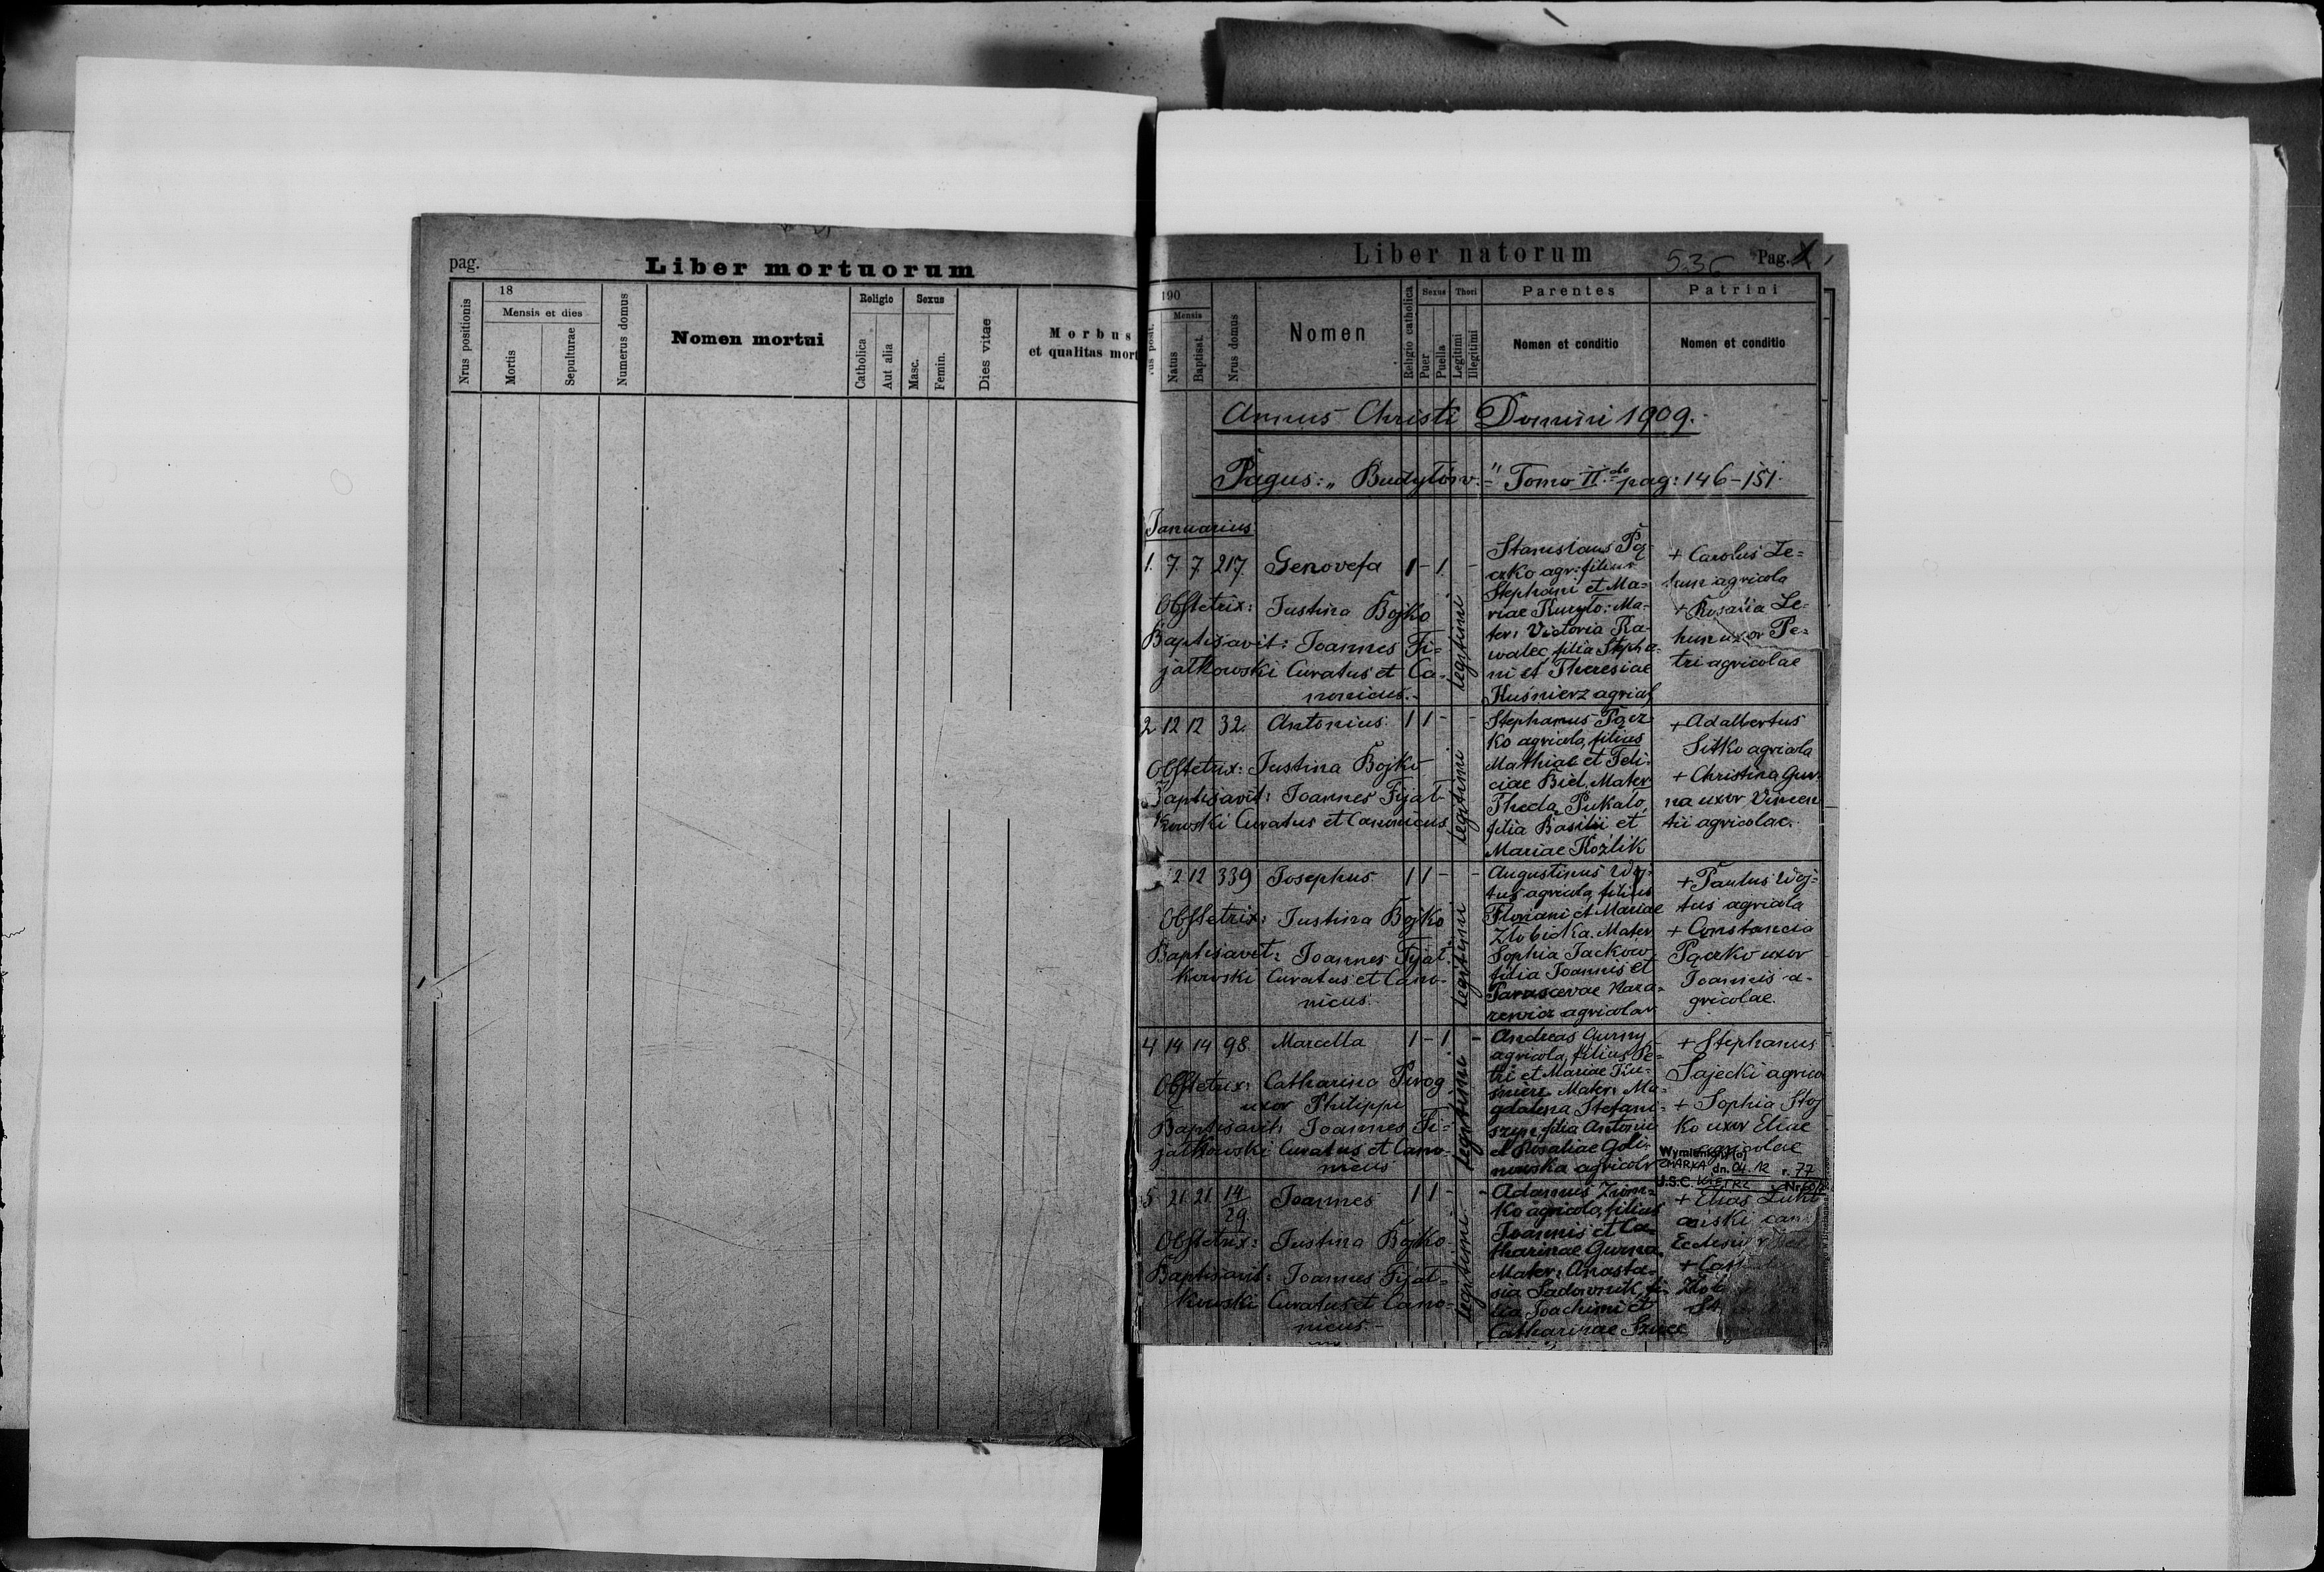 pag.
Liber mortuorum
Nrus positionis
18
Mensis et dies
Mortis
Sepulturae
Numerus domus
Nomen mortui
Religio
Catholica
Aut alia
Sexus
Masc.
Femin.
Dies vitae
Morbus
et qualitas mort
Liber natorum
536
Pag. 1
190
Mensis
Natus
Baptisat.
Nrus domus
Nomen
Religio catholica
Sexus
Puer
Puella
Thori
Legitimi
Illegitimi
Parentes
Nomen et conditio
Patrini
Nomen et conditio
Annus Christi Domini 1909.
Pagus: „Budyłów." Tomo II.do pag: 146-151.
Januarius
1. 7. 7 217. Genovefa 1 - 1 -
Obstetrix: Justina Bojko
Baptisavit: Joannes Fi=
jałkowski Curatus et Ca-
nonicus.-
legitimi
Stanislaus Pą-
czko agr: filius
Stephani et Ma-
riae Kuryło: Ma-
ter: Victoria Ka-
walec filia Stepha-
ni et Theresiae
Kuśnierz agricol
+ Carolus Le=
hun agricola
+ Rosalia Le-
hun uxor Pe=
tri agricolae
2 12 12 32. Antonius. 1 1 - -
Obstetrix: Justina Bojko
Baptisavit: Joannes Fijał-
kowski Curatus et Canonicus
legitimi
Stephanus Pącz
ko agricola, filius
Mathiae et Feli-
ciae Biel. Mater
Thecla Pukało,
filia Basilii et
Mariae Koźlik
+ Adalbertus
Sitko agricola
+ Christina Gur-
na uxor Vincen
tii agricolae.
12 12 339 Josephus 1 1 - -
Obstetrix: Justina Bojko
Baptisavit: Joannes Fijał-
kowski Curatus et Cano-
nicus.
legitimi
Augustinus Woj-
tus agricola, filius
Floriani et Mariae
Mater
Sophia Jacków
filia Joannis et
Parascevae Naza-
rewicz agricolar
+ Paulus Woj=
tus agricola
+ Constancia
Pączko uxor
Joannis a-
gricolae.
4 14 14 98. Marcella 1 - 1 -
Obstetrix: Catharina Pirog
uxor Philippi
Baptisavit: Joannes Fi=
jałkowski Curatus et Cano-
nicus
legitimi
Andreas Gurny
agricola, filius Pe=
tri et Mariae Ku-
śnierz Mater: Ma-
gdalena Stefani-
szyn, filia Antonii
et Rosaliae Goli-
nowska agricolr
+ Stephanus
Sajecki agrico
+ Sophia Stoj
ko uxor Eliae
agricolae
dn. 04. 12 r. 77
U.S.C. KIETRZ
5 21 21 14/29 Joannes 1 1 - -
Obstetrix: Justina Bojko
Baptisavit: Joannes Fijał=
kowski Curatus et Cano-
nicus.-
legitimi
Adamus Ziom-
ko agricola, filius
Joannis et Ca-
tharinae Gurna
Mater: Anasta-
sia Sadownik, fi-
lia Joachimi et
Catharinae Szwec
+ Elias